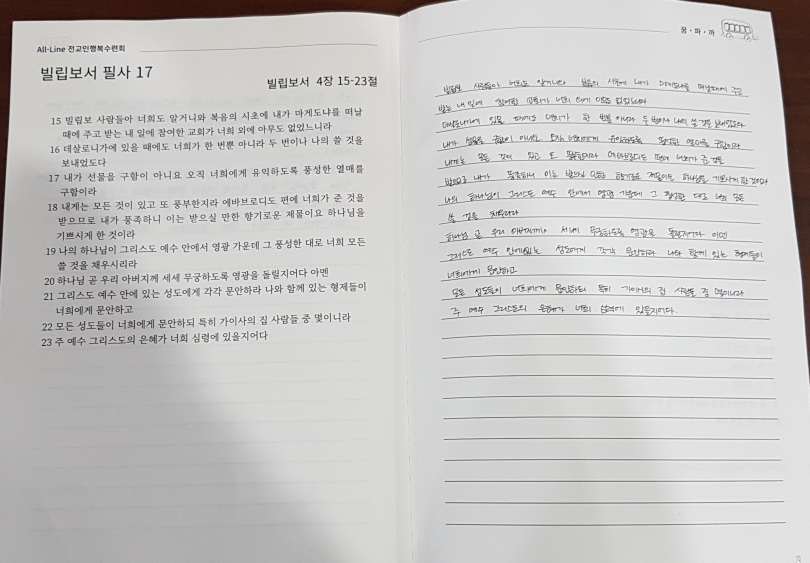 All-Line 전교인행복수련회
빌립보서 필사 17
빌립보서 4장 15-23절
15 빌립보 사람들아 너희도 알거니와 복음의 시초에 내가 마게도냐를 떠날
때에 주고 받는 내 일에 참여한 교회가 너희 외에 아무도 없었느니라
16 데살로니가에 있을 때에도 너희가 한 번뿐 아니라 두 번이나 나의 쓸 것을
보내었도다
17 내가 선물을 구함이 아니요 오직 너희에게 유익하도록 풍성한 열매를
구함이라
18 내게는 모든 것이 있고 또 풍부한지라 에바브로디도 편에 너희가 준 것을
받으므로 내가 풍족하니 이는 받으실 만한 향기로운 제물이요 하나님을
기쁘시게 한 것이라
19 나의 하나님이 그리스도 예수 안에서 영광 가운데 그 풍성한 대로 너희 모든
쓸 것을 채우시리라
20 하나님 곧 우리 아버지께 세세 무궁하도록 영광을 돌릴지어다 아멘
21 그리스도 예수 안에 있는 성도에게 각각 문안하라 나와 함께 있는 형제들이
너희에게 문안하고
22 모든 성도들이 너희에게 문안하되 특히 가이사의 집 사람들 중 몇이니라
23 주 예수 그리스도의 은혜가 너희 심령에 있을지어다
꿈·파·까
빌립보 사람들아 너희도 알거니와 복음의 시초에 내가 마게도냐를 떠날때에 주고
받는 내 일에 참여한 교회가 너희 외에 아무도 없었느니라
데살로니가에 있을 때에도 너희가 한 번뿐 아니라 두 번이나 나의 쓸 것을 보내었도다
내가 선물을 구함이 아니요 오직 너희에게 유익하도록 풍성한 열매를 구함이라
내게는 모든 것이 있고 또 풍부한지라 에바브로디도 편에 너희가 준 것을
받으므로 내가 풍족하니 이는 받으실 만한 향기로운 제물이요 하나님을 기쁘시게 한 것이라
나의 하나님이 그리스도 예수 안에서 영광 가운데 그 풍성한 대로 너희 모든
쓸 것을 채우시리라
하나님 곧 우리 아버지께 세세 무궁하도록 영광을 돌릴지어다 아멘
그리스도 예수 안에있는 성도에게 각각 문안하라 나와 함께 있는 형제들이
너희에게 문안하고
모든 성도들이 너희에게 문안하되 특히 가이사의 집 사람들 중 몇이니라
주 예수 그리스도의 은혜가 너희 심령에 있을지어다.